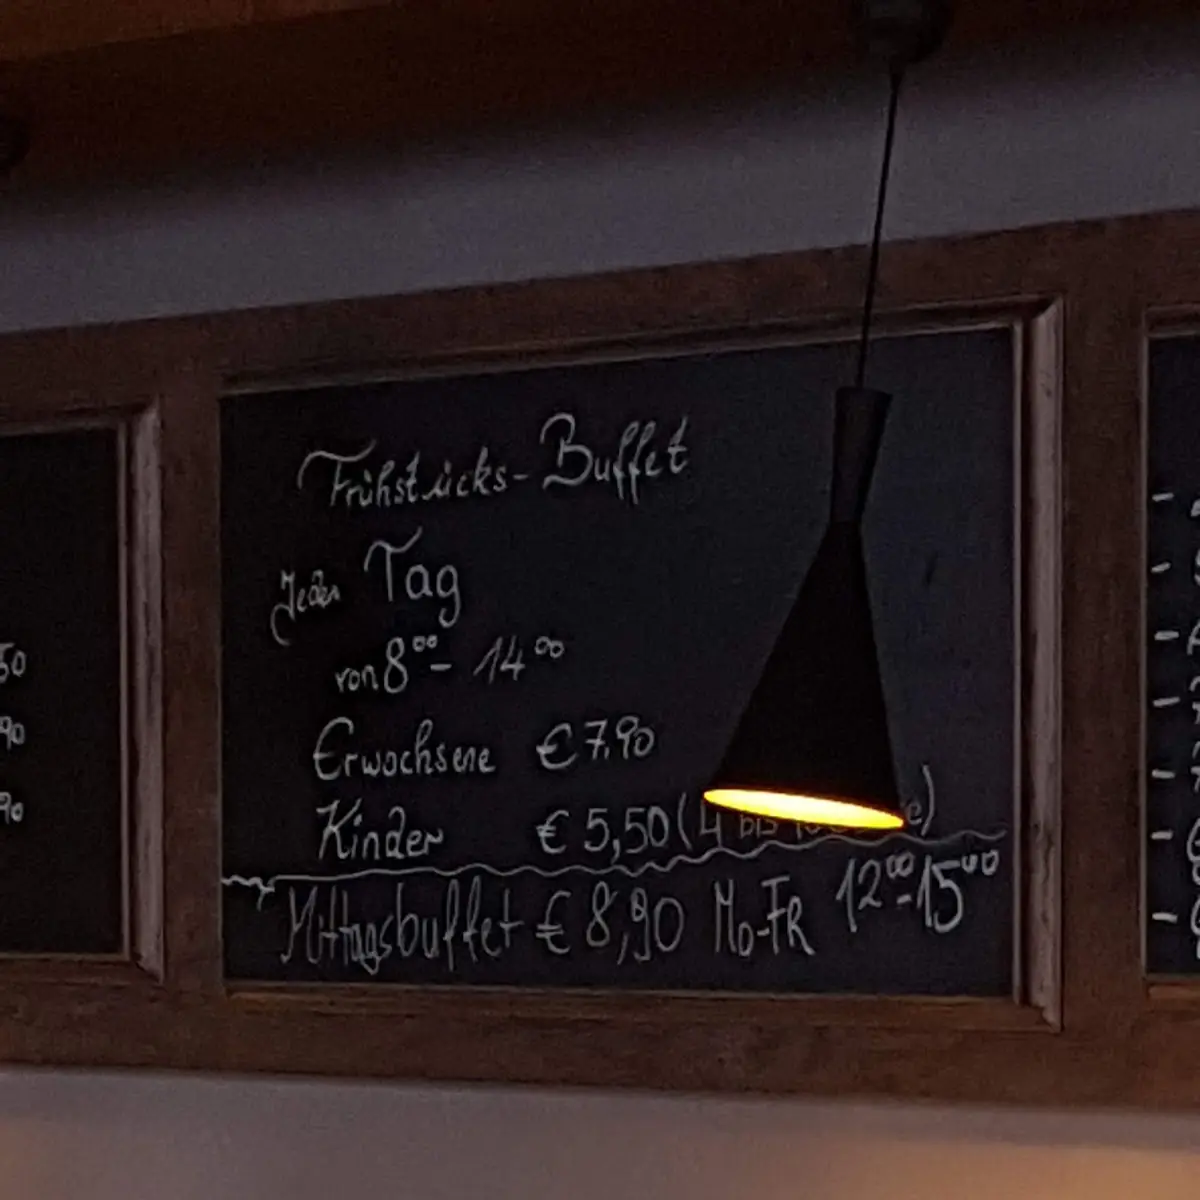 50
90
90
Frühstücks-Buffet
Jeden Tag
von 8⁰⁰- 14⁰⁰
Erwachsene € 7,90
Kinder € 5,50 (4 bis
Mittagsbuffet € 8,90 Mo-FR 12⁰⁰-15⁰⁰